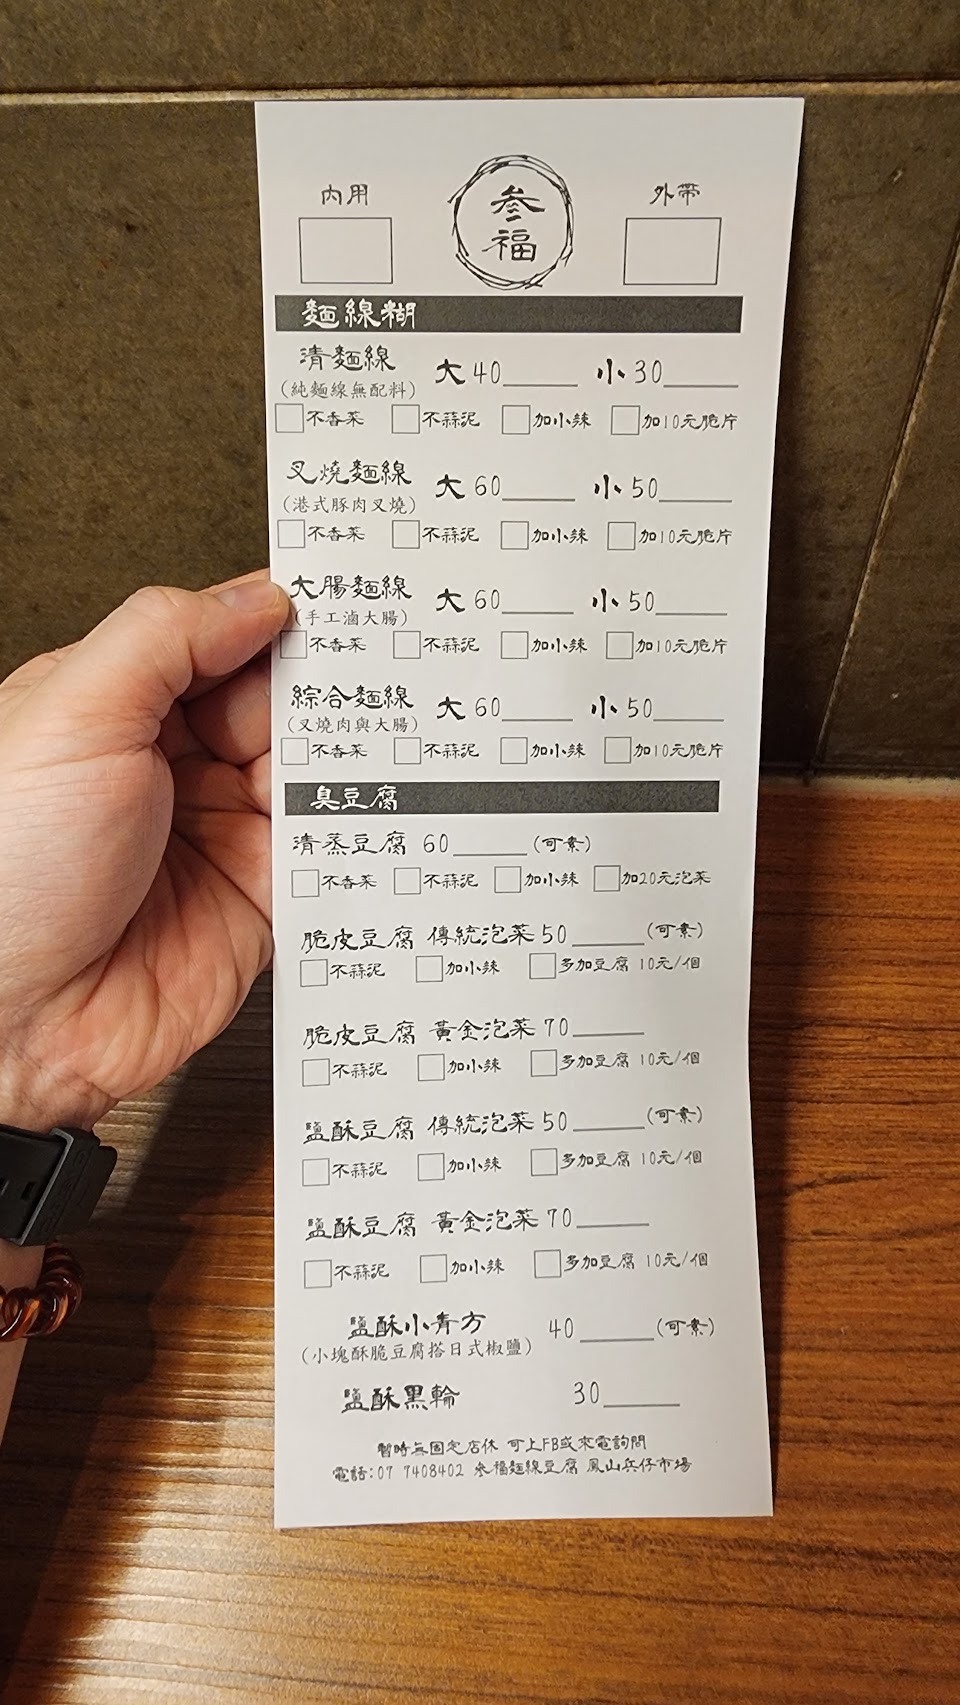 內用 參福 外帶
麵線糊
清麵線 大 40 小 30
(純麵線無配料)
不香菜 不蒜泥 加小辣 加10元脆片
叉燒麵線 大 60 小 50
(港式豚肉叉燒)
不香菜 不蒜泥 加小辣 加10元脆片
大腸麵線 大 60 小 50
(手工滷大腸)
不香菜 不蒜泥 加小辣 加10元脆片
綜合麵線 大 60 小 50
(叉燒肉與大腸)
不香菜 不蒜泥 加小辣 加10元脆片
臭豆腐
清蒸豆腐 60 (可素)
不香菜 不蒜泥 加小辣 加20元泡菜
脆皮豆腐 傳統泡菜 50 (可素)
不蒜泥 加小辣 多加豆腐 10元/個
脆皮豆腐 黃金泡菜 70
不蒜泥 加小辣 多加豆腐 10元/個
鹽酥豆腐 傳統泡菜 50 (可素)
不蒜泥 加小辣 多加豆腐 10元/個
鹽酥豆腐 黃金泡菜 70
不蒜泥 加小辣 多加豆腐 10元/個
鹽酥小青方 40 (可素)
(小塊酥脆豆腐搭日式椒鹽)
鹽酥黑輪 30
暫時無固定店休 可上FB或來電詢問
電話:07 7408402 參福麵線豆腐 鳳山兵仔市場